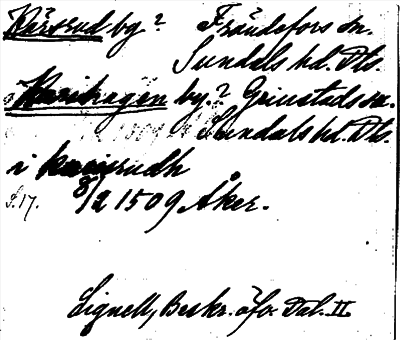 Kårsrud by? Frändefors sn.
Sundals hd. Dls
Karihagen by.? Grinstads sn.
Sundals hd. Dls.
i karisrudh
S.17. 8/2 1509 Åker.
Lignell, Beskr. öfv. Dal. II.